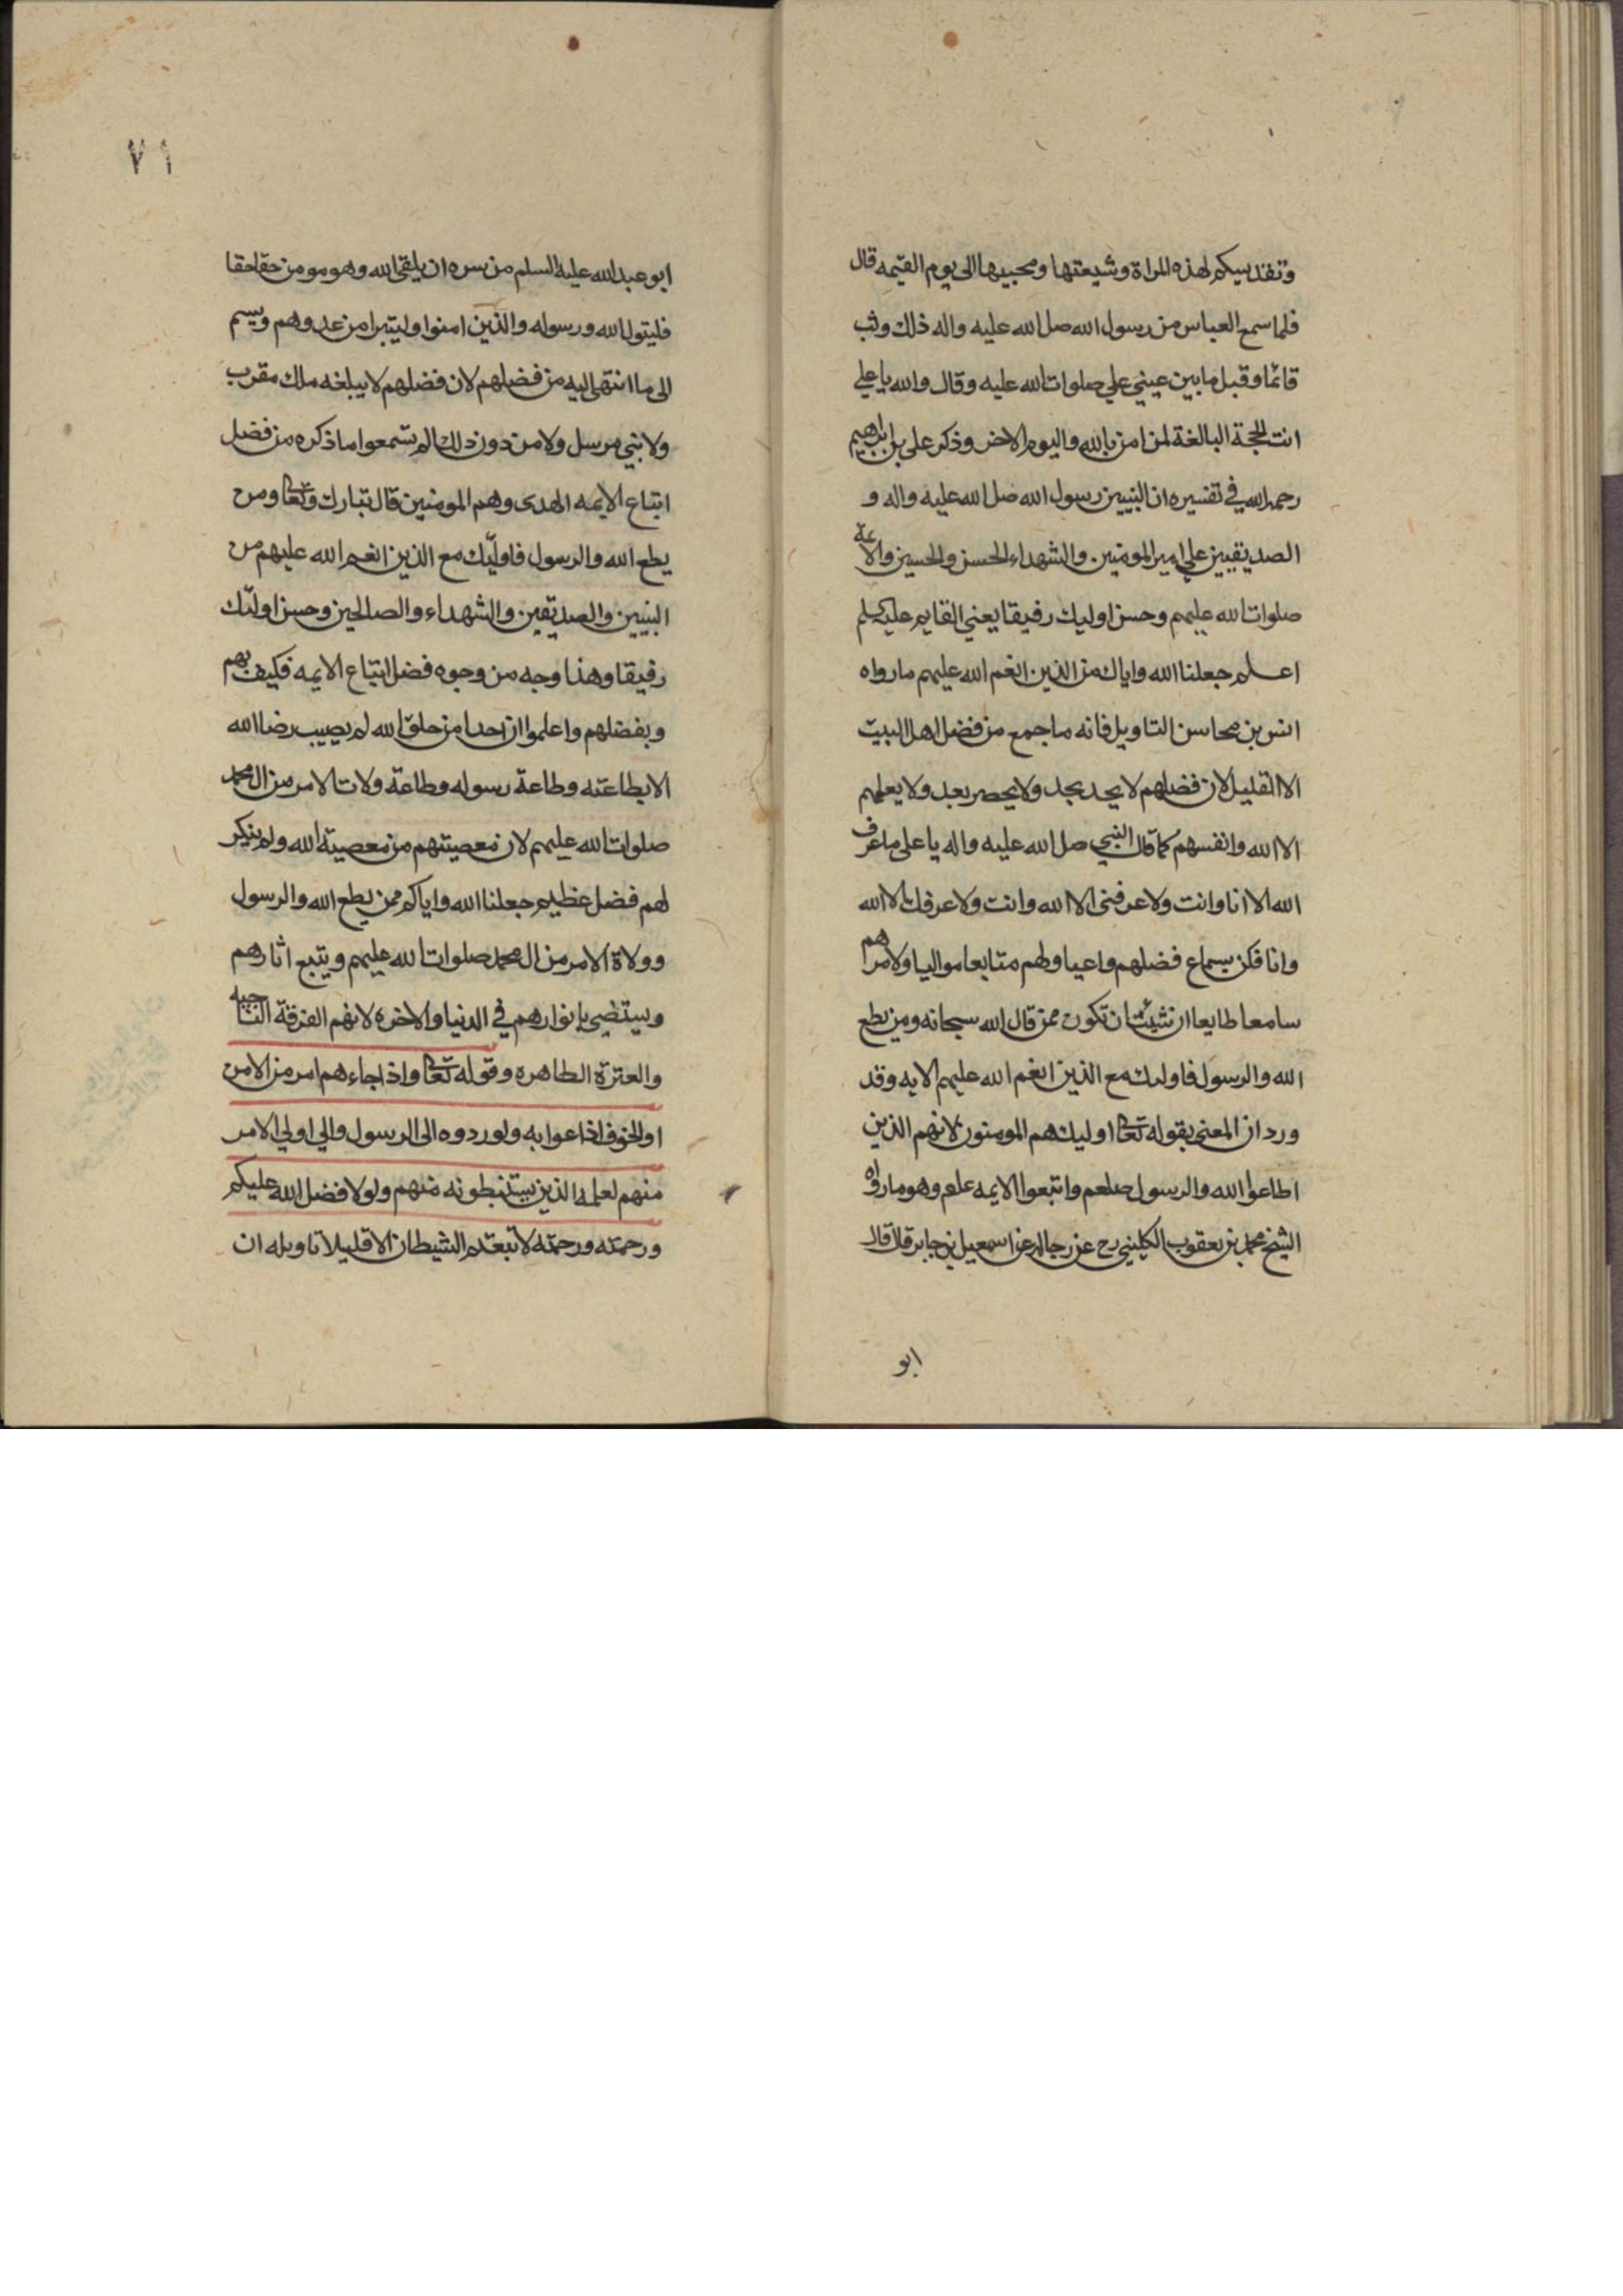 وتقديسكم لهذه المراة وشيعتها ومحبيها الى يوم القيمه قال
فلما سمع العباس من رسول الله صل الله عليه واله ذلك وثب
قائما وقبل ما بين عيني علي صلوات الله عليه وقال والله يا علي
انت الحجة البالغة لمن امن بالله واليوم الاخر وذكر على بن ابراهيم
رحمه الله في تفسيره ان النبيين رسول الله صل الله عليه واله و
الصديقيين علي امير المومنين والشهداء الحسن والحسين والائمة
صلوات الله عليهم وحسن اوليك رفيقا يعني القايم عليه سلم
اعلم جعلنا الله واياك من الذين انعم الله عليهم ما رواه
انس بن محاسن التاويل فانه ما جمع من فضل اهل البيت
الا القليل لان فضلهم لا يحد بحد ولا يحصر بعد ولا يعلمهم
الا الله وانفسهم كما قال النبي صل الله عليه واله يا على ما عرف
الله الا انا وانت ولا عرفنى الا الله وانت ولا عرفك الا الله
وانا فكن بسماع فضلهم واعيا ولهم متابعا مواليا ولامرهم
سامعا طايعا ان شئت ان تكون ممن قال الله سبحانه ومن يطع
الله والرسول فاوليك مع الذين انعم الله عليهم الايه وقد
ورد ان المعنى بقوله تعالى اوليك هم المومنون لانهم الذين
اطاعوا الله والرسول صلعم واتبعوا الايمه علم وهو ما رواه
الشيخ محمد بن يعقوب الكليني رح عن رجاله عن اسمعيل بن جابر قال قال
ابو
٧١
ابو عبد الله عليه السلم من سره ان يلقى الله وهو مومن حقا حقا
فليتول الله ورسوله والذين امنوا وليتبرا من عدوهم ويسم
الى ما انتهى اليه من فضلهم لان فضلهم لا يبلغه ملك مقرب
ولا نبي مرسل ولا من دون ذلك الم تسمعوا ما ذكره من فضل
اتباع الايمه الهدى وهم المومنين قال تبارك وتعالى ومن
يطع الله والرسول فاوليك مع الذين انعم الله عليهم من
النبيين والصديقين والشهداء والصالحين وحسن اوليك
رفيقا وهذا وجه من وجوه فضل اتباع الايمه فكيف بهم
وبفضلهم واعلموا ان احدا من خلق الله لم يصيب رضا الله
الا بطاعته وطاعة رسوله وطاعة ولات الامر من ال محمد
صلوات الله عليهم لان معصيتهم من معصية الله ولم ينكر
لهم فضل عظيم جعلنا الله واياكم ممن يطع الله والرسول
وولاة الامر من ال محمد صلوات الله عليهم ويتبع اثارهم
ويستضي بانوارهم في الدنيا والاخره لانهم الفرقة الناجيه
والعترة الطاهره وقوله تعالى واذا جاءهم امر من الامن
او الخوف اذاعوا به ولو ردوه الى الرسول والي اولي الامر
منهم لعلمه الذين يستنبطونه منهم ولولا فضل الله عليكم
ورحمته ورحمته لاتبعتم الشيطان الا قليلا تاويله ان